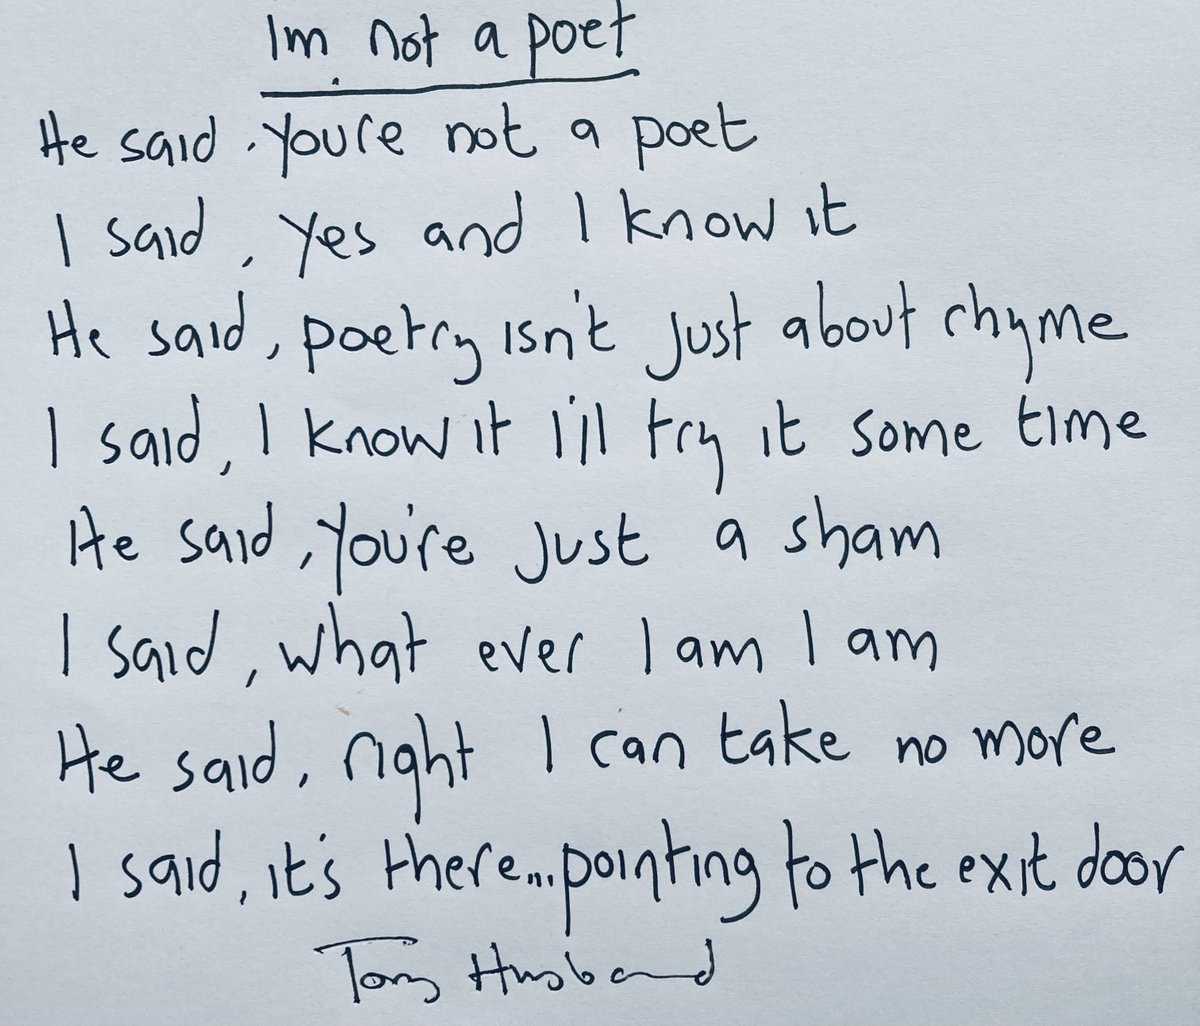 Im not a poet
He said. You're not a poet
I said, yes and I know it
He said, poetry isn't just about rhyme
I said, I know it I'll try it some time
He said, you're just a sham
I said, what ever I am I am
He said, right I can take no more
I said, it's there...pointing to the exit door
Tony Husband